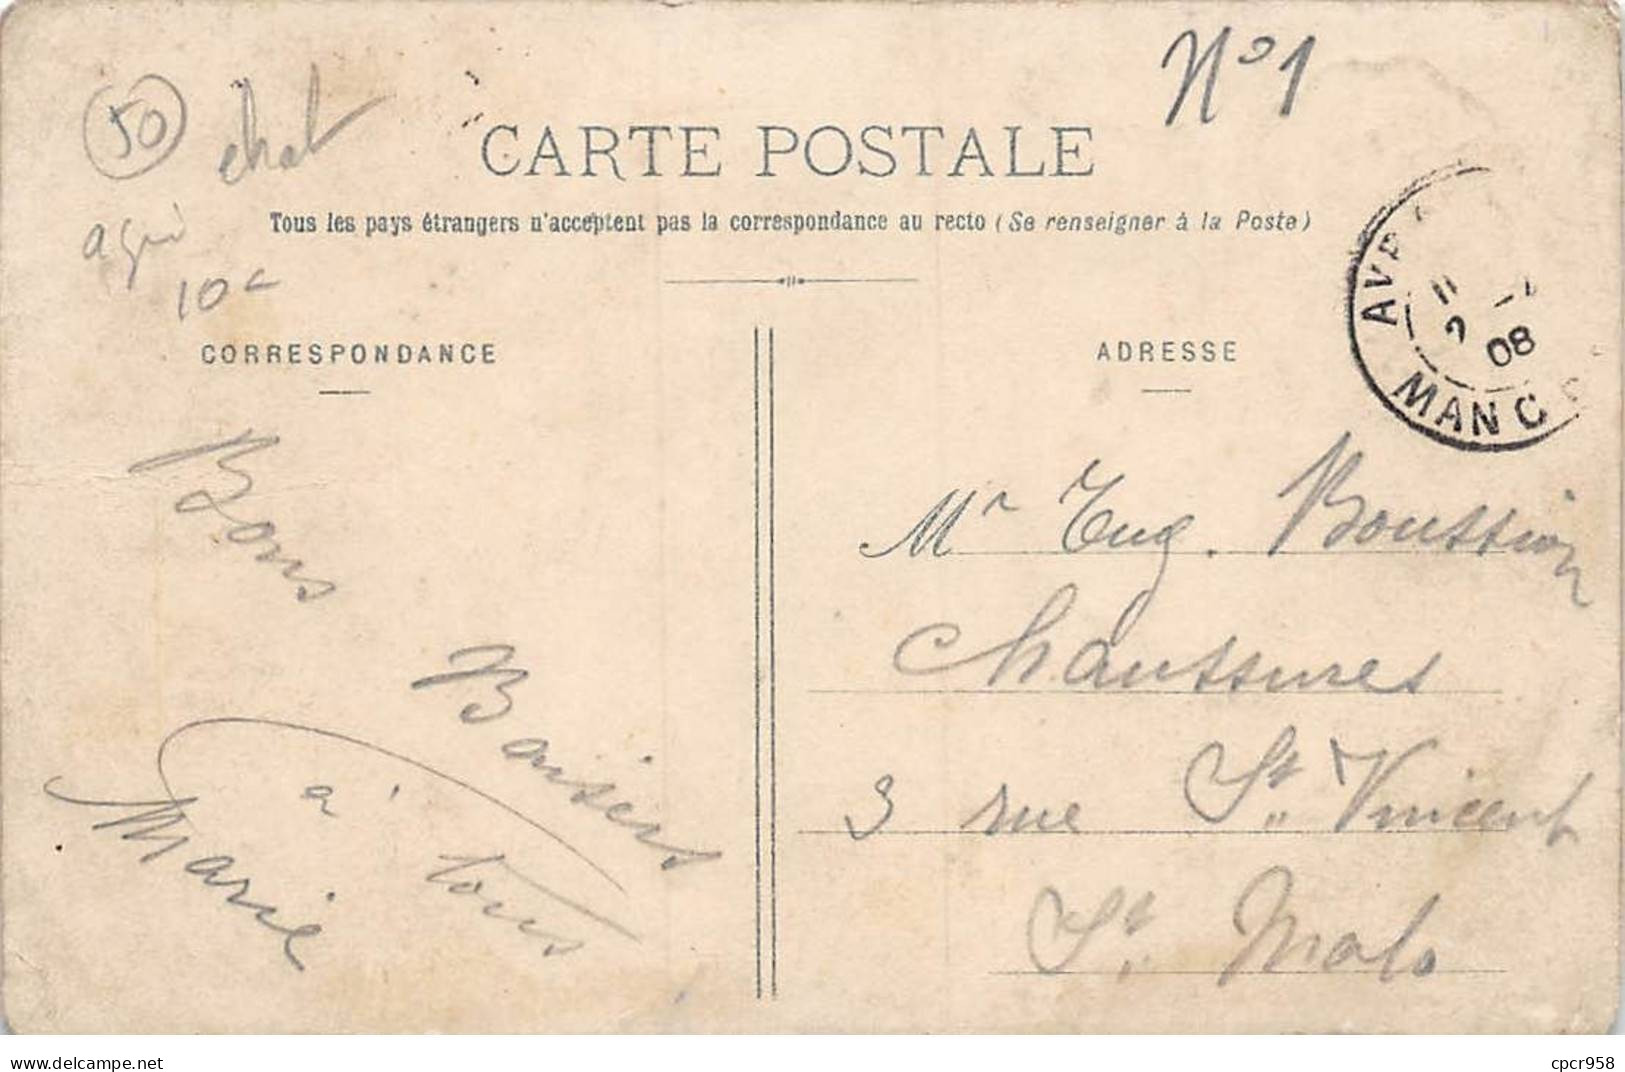 N°1
50
chat
CARTE POSTALE
Tous les pays étrangers n'acceptent pas la correspondance au recto (Se renseigner à la Poste)
agri
10c
MANC
08
CORRESPONDANCE
ADRESSE
Bons
Baisers
à tous
Marie
Mr Eug. Boussion
Chaussures
3 rue St. Vincent
St. Malo
Delcampe.net
cpcr958